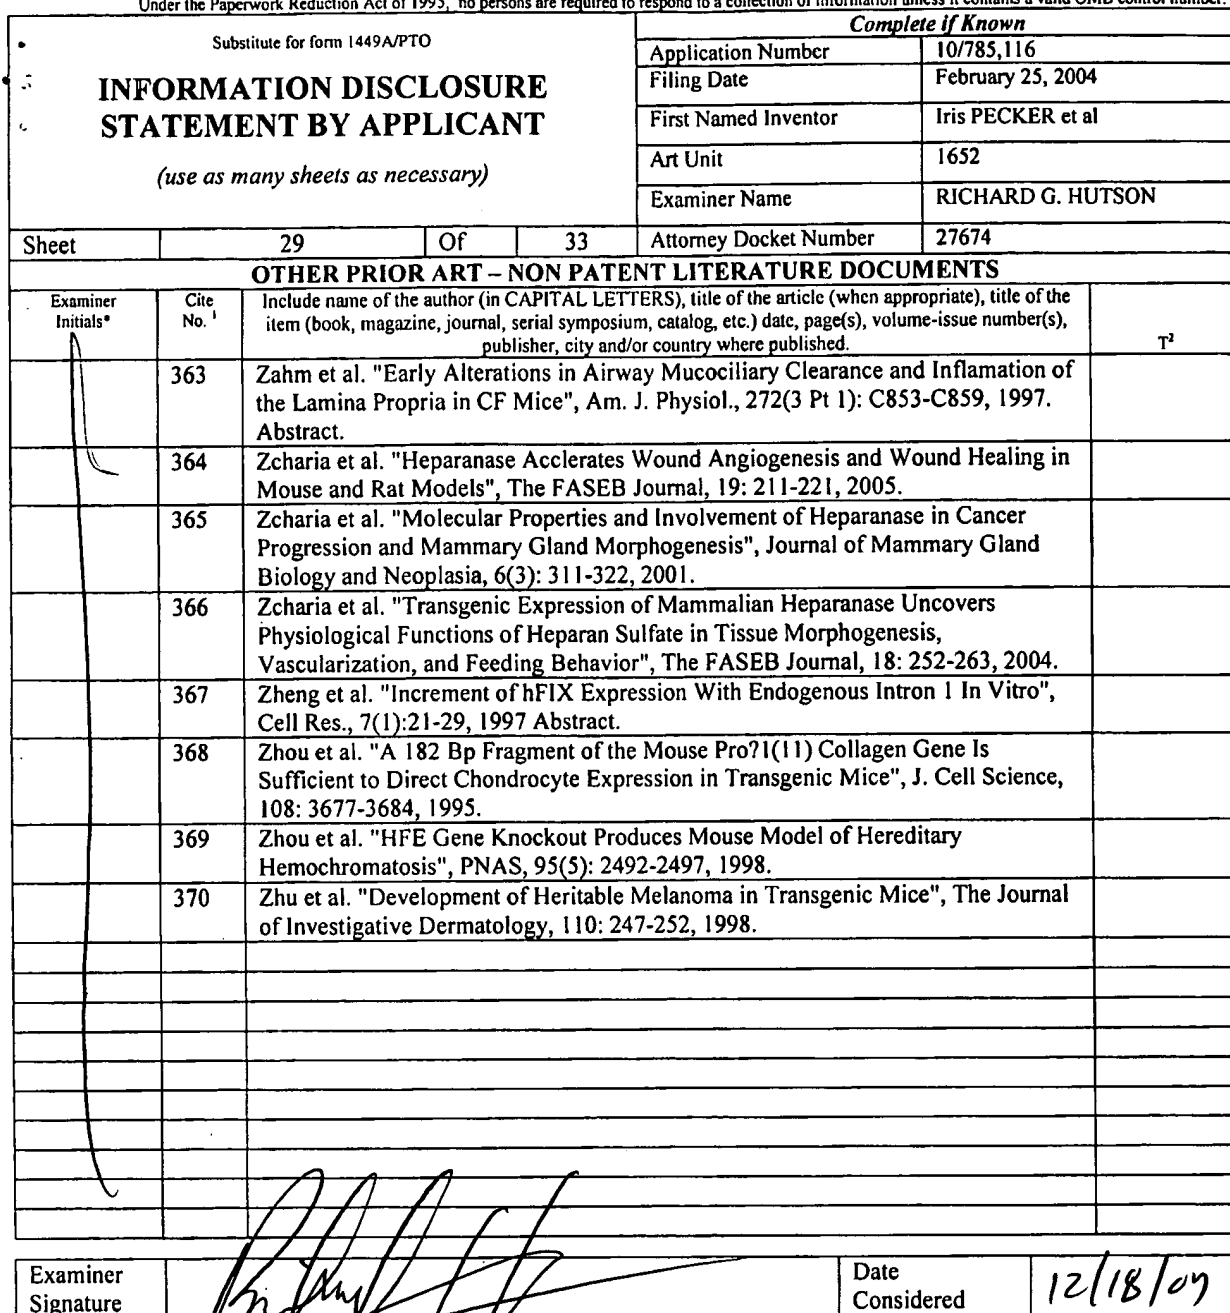 Under the Paperwork Reduction Act of 1995, no persons are required to respond to a collection of information unless it contains a valid OMB control number.
Substitute for form 1449A/PTO
INFORMATION DISCLOSURE
STATEMENT BY APPLICANT
(use as many sheets as necessary)
Complete if Known
Application Number 10/785,116
Filing Date February 25, 2004
First Named Inventor Iris PECKER et al
Art Unit 1652
Examiner Name RICHARD G. HUTSON
Sheet 29 Of 33 Attorney Docket Number 27674
OTHER PRIOR ART – NON PATENT LITERATURE DOCUMENTS
Examiner
Initials*
Cite
No. 1
Include name of the author (in CAPITAL LETTERS), title of the article (when appropriate), title of the
item (book, magazine, journal, serial symposium, catalog, etc.) date, page(s), volume-issue number(s),
publisher, city and/or country where published.
T²
363 Zahm et al. "Early Alterations in Airway Mucociliary Clearance and Inflamation of
the Lamina Propria in CF Mice", Am. J. Physiol., 272(3 Pt 1): C853-C859, 1997.
Abstract.
364 Zcharia et al. "Heparanase Acclerates Wound Angiogenesis and Wound Healing in
Mouse and Rat Models", The FASEB Journal, 19: 211-221, 2005.
365 Zcharia et al. "Molecular Properties and Involvement of Heparanase in Cancer
Progression and Mammary Gland Morphogenesis", Journal of Mammary Gland
Biology and Neoplasia, 6(3): 311-322, 2001.
366 Zcharia et al. "Transgenic Expression of Mammalian Heparanase Uncovers
Physiological Functions of Heparan Sulfate in Tissue Morphogenesis,
Vascularization, and Feeding Behavior", The FASEB Journal, 18: 252-263, 2004.
367 Zheng et al. "Increment of hFIX Expression With Endogenous Intron 1 In Vitro",
Cell Res., 7(1):21-29, 1997 Abstract.
368 Zhou et al. "A 182 Bp Fragment of the Mouse Pro?1(11) Collagen Gene Is
Sufficient to Direct Chondrocyte Expression in Transgenic Mice", J. Cell Science,
108: 3677-3684, 1995.
369 Zhou et al. "HFE Gene Knockout Produces Mouse Model of Hereditary
Hemochromatosis", PNAS, 95(5): 2492-2497, 1998.
370 Zhu et al. "Development of Heritable Melanoma in Transgenic Mice", The Journal
of Investigative Dermatology, 110: 247-252, 1998.
Examiner
Signature
Date
Considered
12/18/07